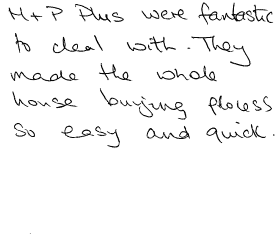 M+P Plus were fantastic
to deal with. They
made the whole
house buying process
so easy and quick.